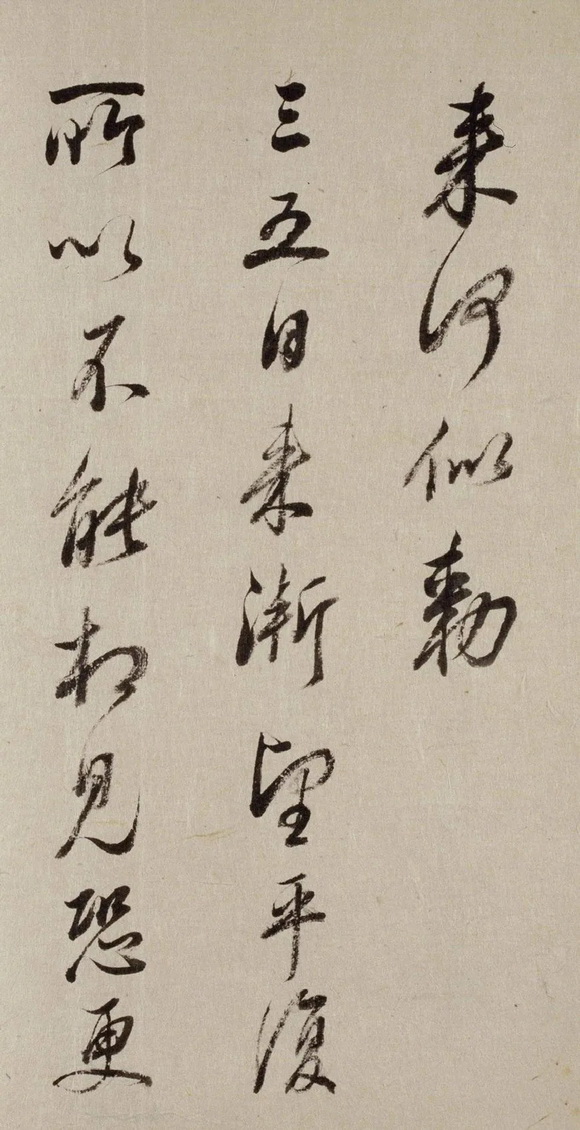 来河似勅
三五日来漸望平復
所以不能相見恐更